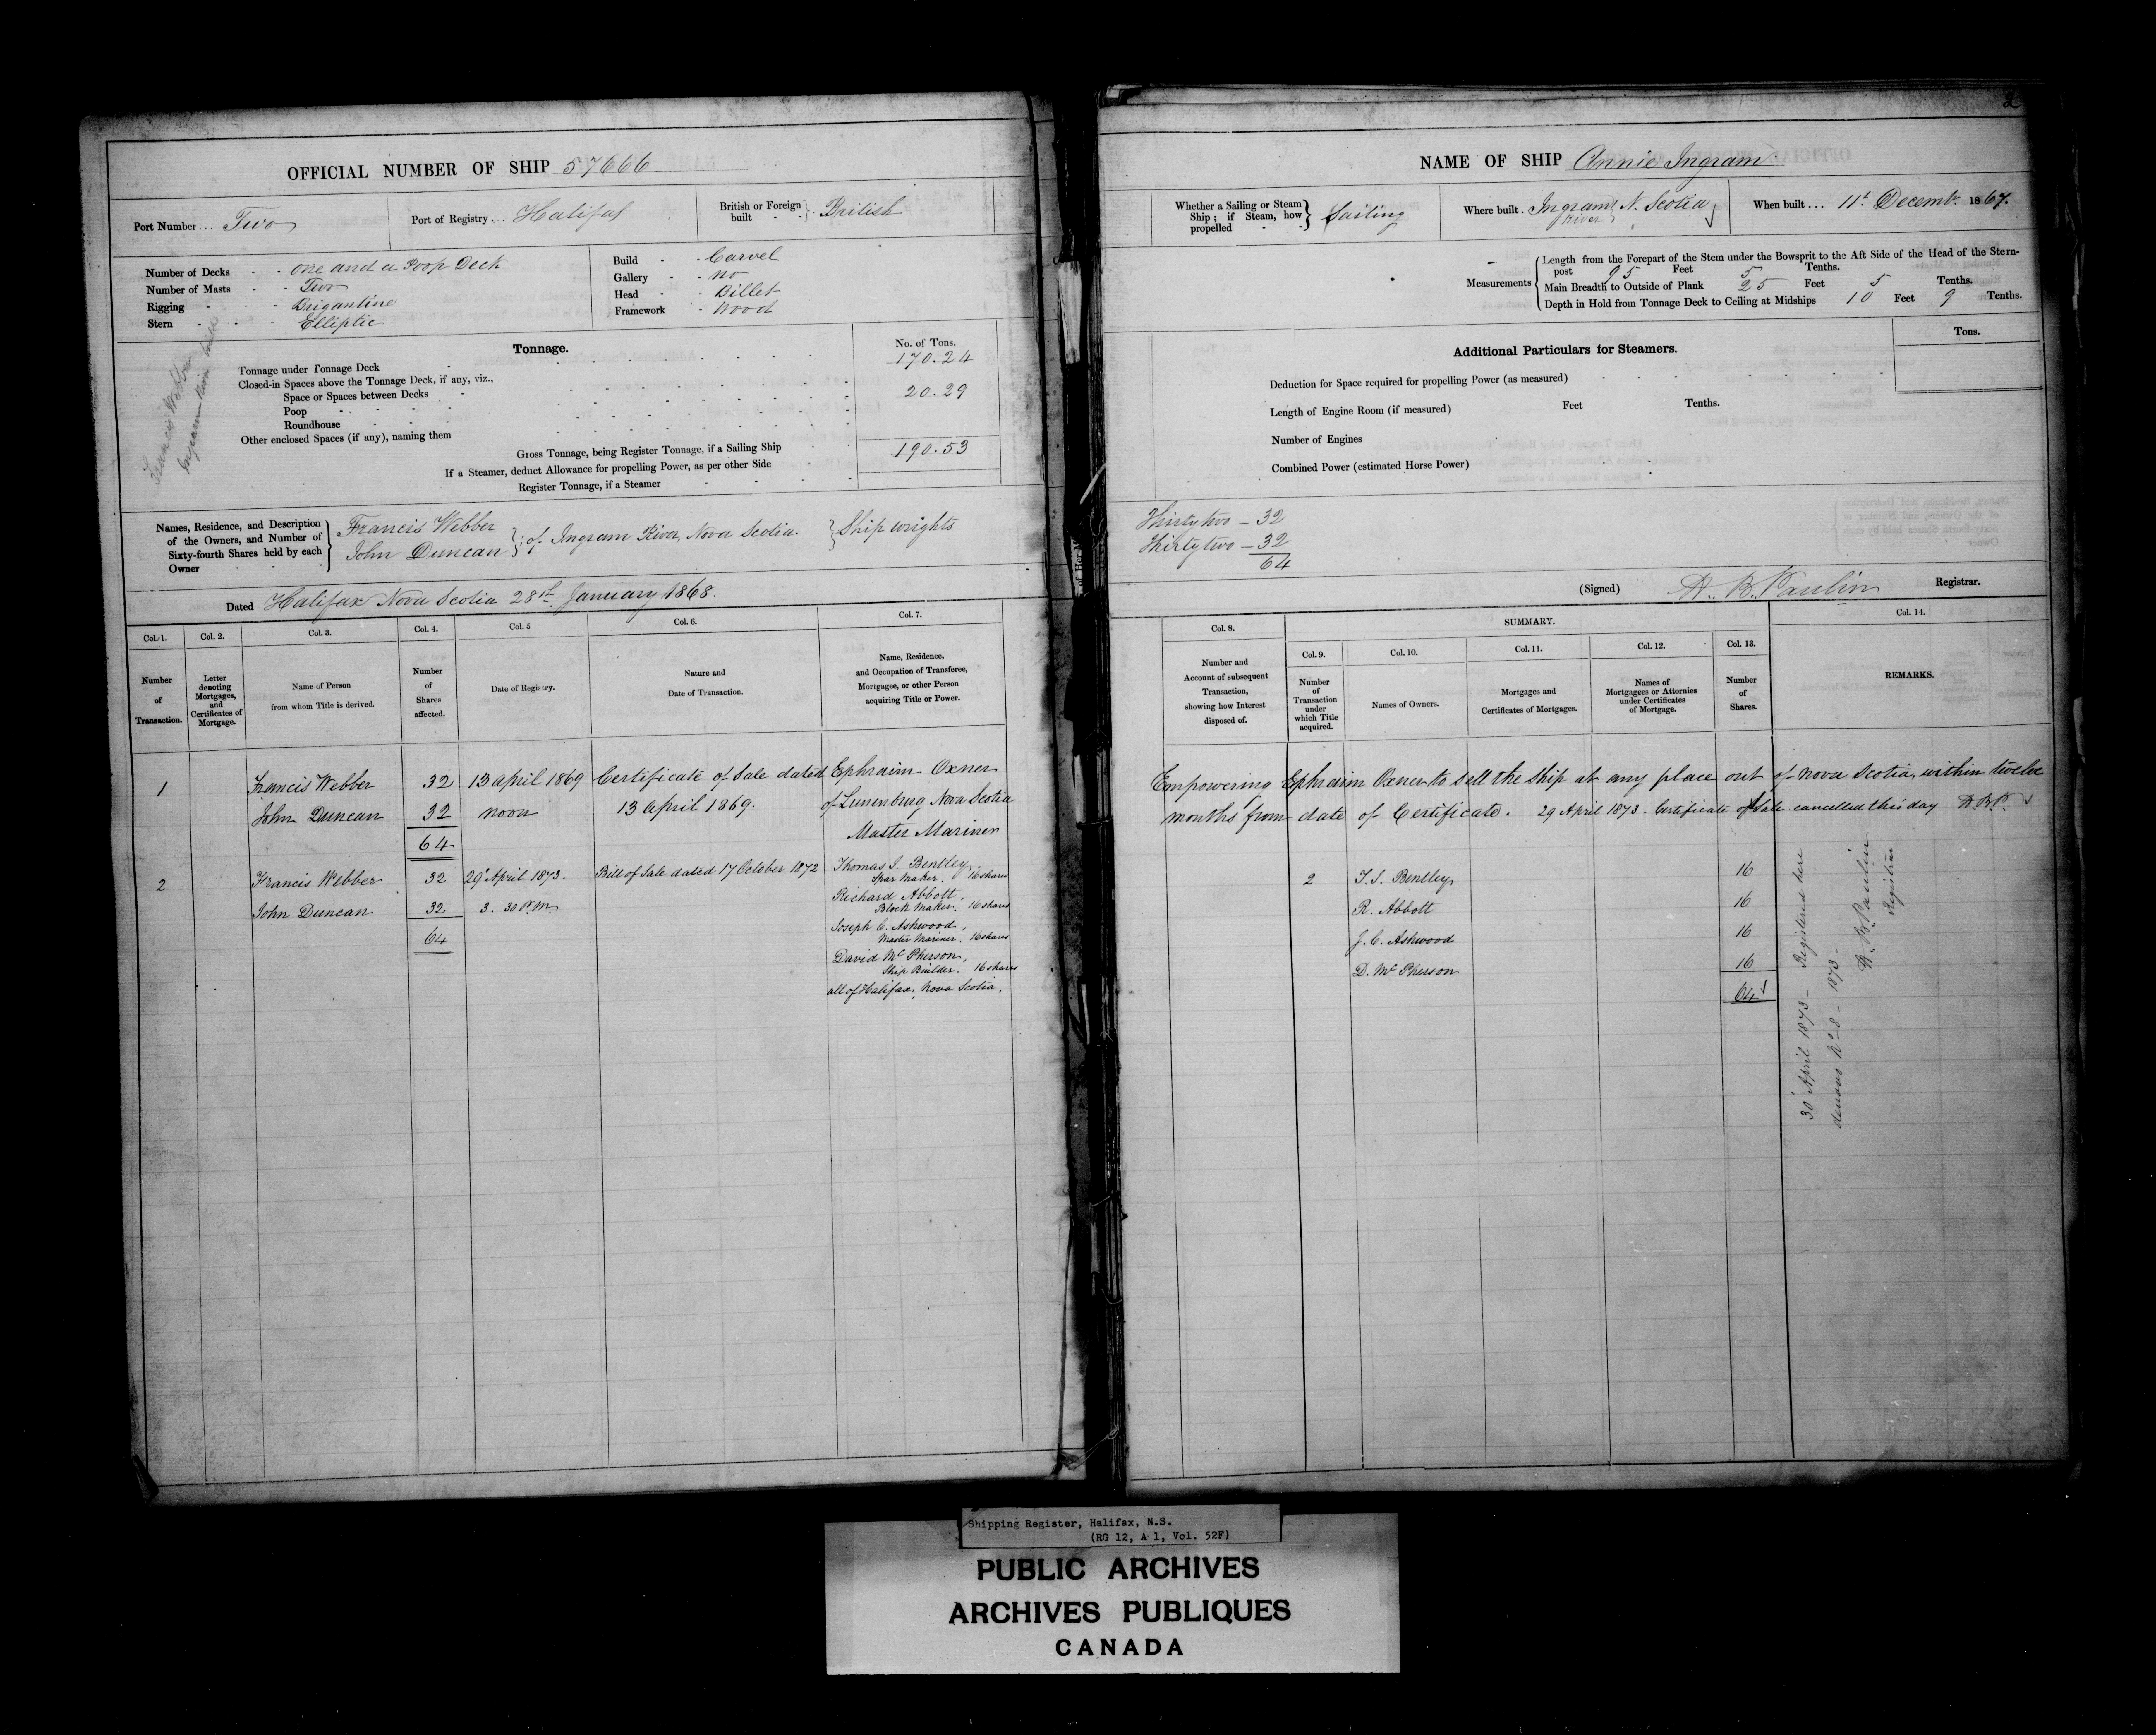 OFFICIAL NUMBER OF SHIP 57666
Port Number ... Two
Port of Registry ... Halifax
British or Foreign built } British
Number of Decks - - one and a Poop Deck
Number of Masts - - Two
Rigging - - Brigantine
Stern - - Elliptic
Build - - Carvel
Gallery - - no
Head - - Billet
Framework - Wood
Francis Webber
Ingram River
Tonnage.
No. of Tons.
Tonnage under Tonnage Deck 170.24
Closed-in Spaces above the Tonnage Deck, if any, viz.,
Space or Spaces between Decks
Poop 20.29
Roundhouse
Other enclosed Spaces (if any), naming them
Gross Tonnage, being Register Tonnage, if a Sailing Ship 190.53
If a Steamer, deduct Allowance for propelling Power, as per other Side
Register Tonnage, if a Steamer
Names, Residence, and Description of the Owners, and Number of Sixty-fourth Shares held by each Owner
Francis Webber
John Duncan } of Ingram River, Nova Scotia. } Ship wrights
Dated Halifax Nova Scotia 28th January 1868.
Col. 1. Col. 2. Col. 3. Col. 4. Col. 5 Col. 6. Col. 7.
Number of Transaction.
Letter denoting Mortgages, and Certificates of Mortgage.
Name of Person from whom Title is derived.
Number of Shares affected.
Date of Registry.
Nature and Date of Transaction.
Name, Residence, and Occupation of Transferee, Mortgagee, or other Person acquiring Title or Power.
1 Francis Webber 32 13 April 1869 Certificate of Sale dated Ephraim Oxner
John Duncan 32 noon 13 April 1869. of Lunenburg Nova Scotia
64 Master Mariner
2 Francis Webber 32 29 April 1873. Bill of Sale dated 17 October 1872 Thomas S. Bentley,
Spar Maker. 16 shares
John Duncan 32 3. 30 P.M. Richard Abbott,
Block Maker. 16 shares
64 Joseph C. Ashwood,
Master Mariner. 16 shares
David McPherson,
Ship Builder. 16 shares
all of Halifax, Nova Scotia.
2
NAME OF SHIP Annie Ingram
Whether a Sailing or Steam Ship; if Steam, how propelled } Sailing
Where built . Ingram River N. Scotia
When built ... 11t. Decemb. 1867.
Measurements
Length from the Forepart of the Stem under the Bowsprit to the Aft Side of the Head of the Stern-post 95 Feet 5 Tenths.
Main Breadth to Outside of Plank 25 Feet 5 Tenths.
Depth in Hold from Tonnage Deck to Ceiling at Midships 10 Feet 9 Tenths.
Tons.
Additional Particulars for Steamers.
Deduction for Space required for propelling Power (as measured)
Length of Engine Room (if measured) Feet Tenths.
Number of Engines
Combined Power (estimated Horse Power)
Thirty two - 32
Thirty two - 32
64
(Signed) H. B. Paulin Registrar.
Col. 8. SUMMARY. Col. 14.
Col. 9. Col. 10. Col. 11. Col. 12. Col. 13.
Number and Account of subsequent Transaction, showing how Interest disposed of.
Number of Transaction under which Title acquired.
Names of Owners.
Mortgages and Certificates of Mortgages.
Names of Mortgagees or Attornies under Certificates of Mortgage.
Number of Shares.
REMARKS.
Empowering Ephraim Oxner to sell the Ship at any place out of Nova Scotia, within twelve
months from date of Certificate. 29 April 1873 - Certificate of Sale cancelled this day H.B.P.
2 T. S. Bentley, 16
R. Abbott 16
J. C. Ashwood 16
D. McPherson 16
64
30 April 1873 - Registered here
denovo No 28 - 1873 -
H. B. Paulin
Registrar
Shipping Register, Halifax, N.S.
(RG 12, A 1, Vol. 52F)
PUBLIC ARCHIVES
ARCHIVES PUBLIQUES
CANADA